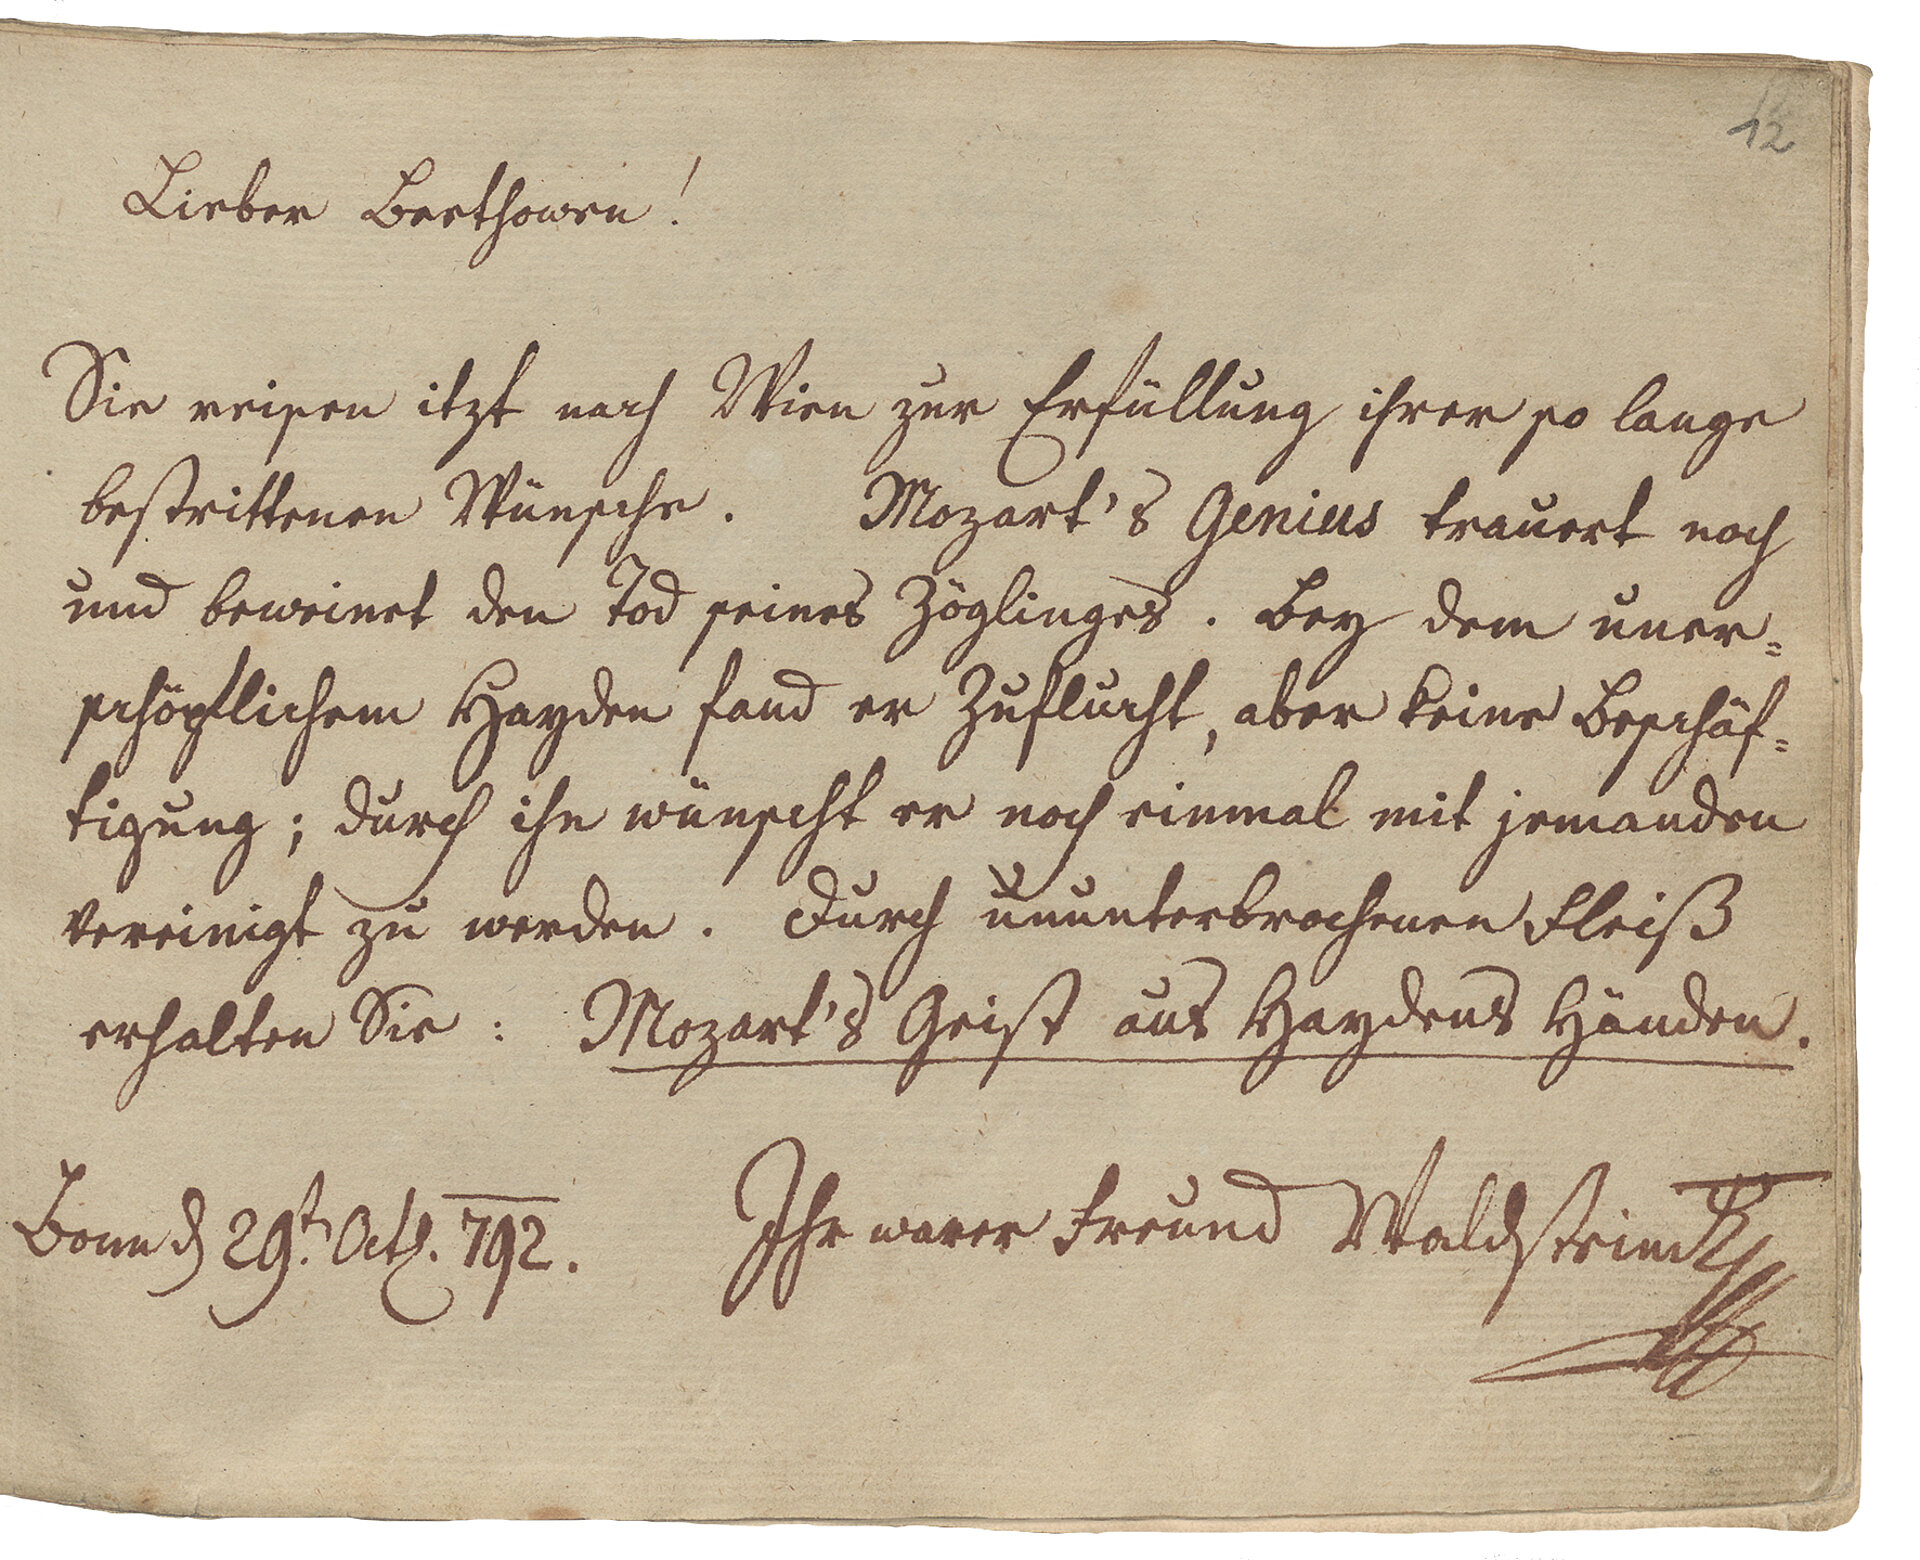 12
Lieber Beethowen!
Sie reisen itzt nach Wien zur Erfüllung ihrer so lange
bestrittenen Wünsche. Mozart's Genius trauert noch
und beweinet den Tod seines Zöglinges. Bey dem uner=
schöpflichem Hayden fand er Zuflucht, aber keine Beschäf=
tigung; durch ihn wünscht er noch einmal mit jemanden
vereinigt zu werden. Durch ununterbrochenen Fleiß
erhalten Sie: Mozart's Geist aus Haydens Händen.
Bonn d 29t. Octb. 792. Ihr warer Freund Waldstein